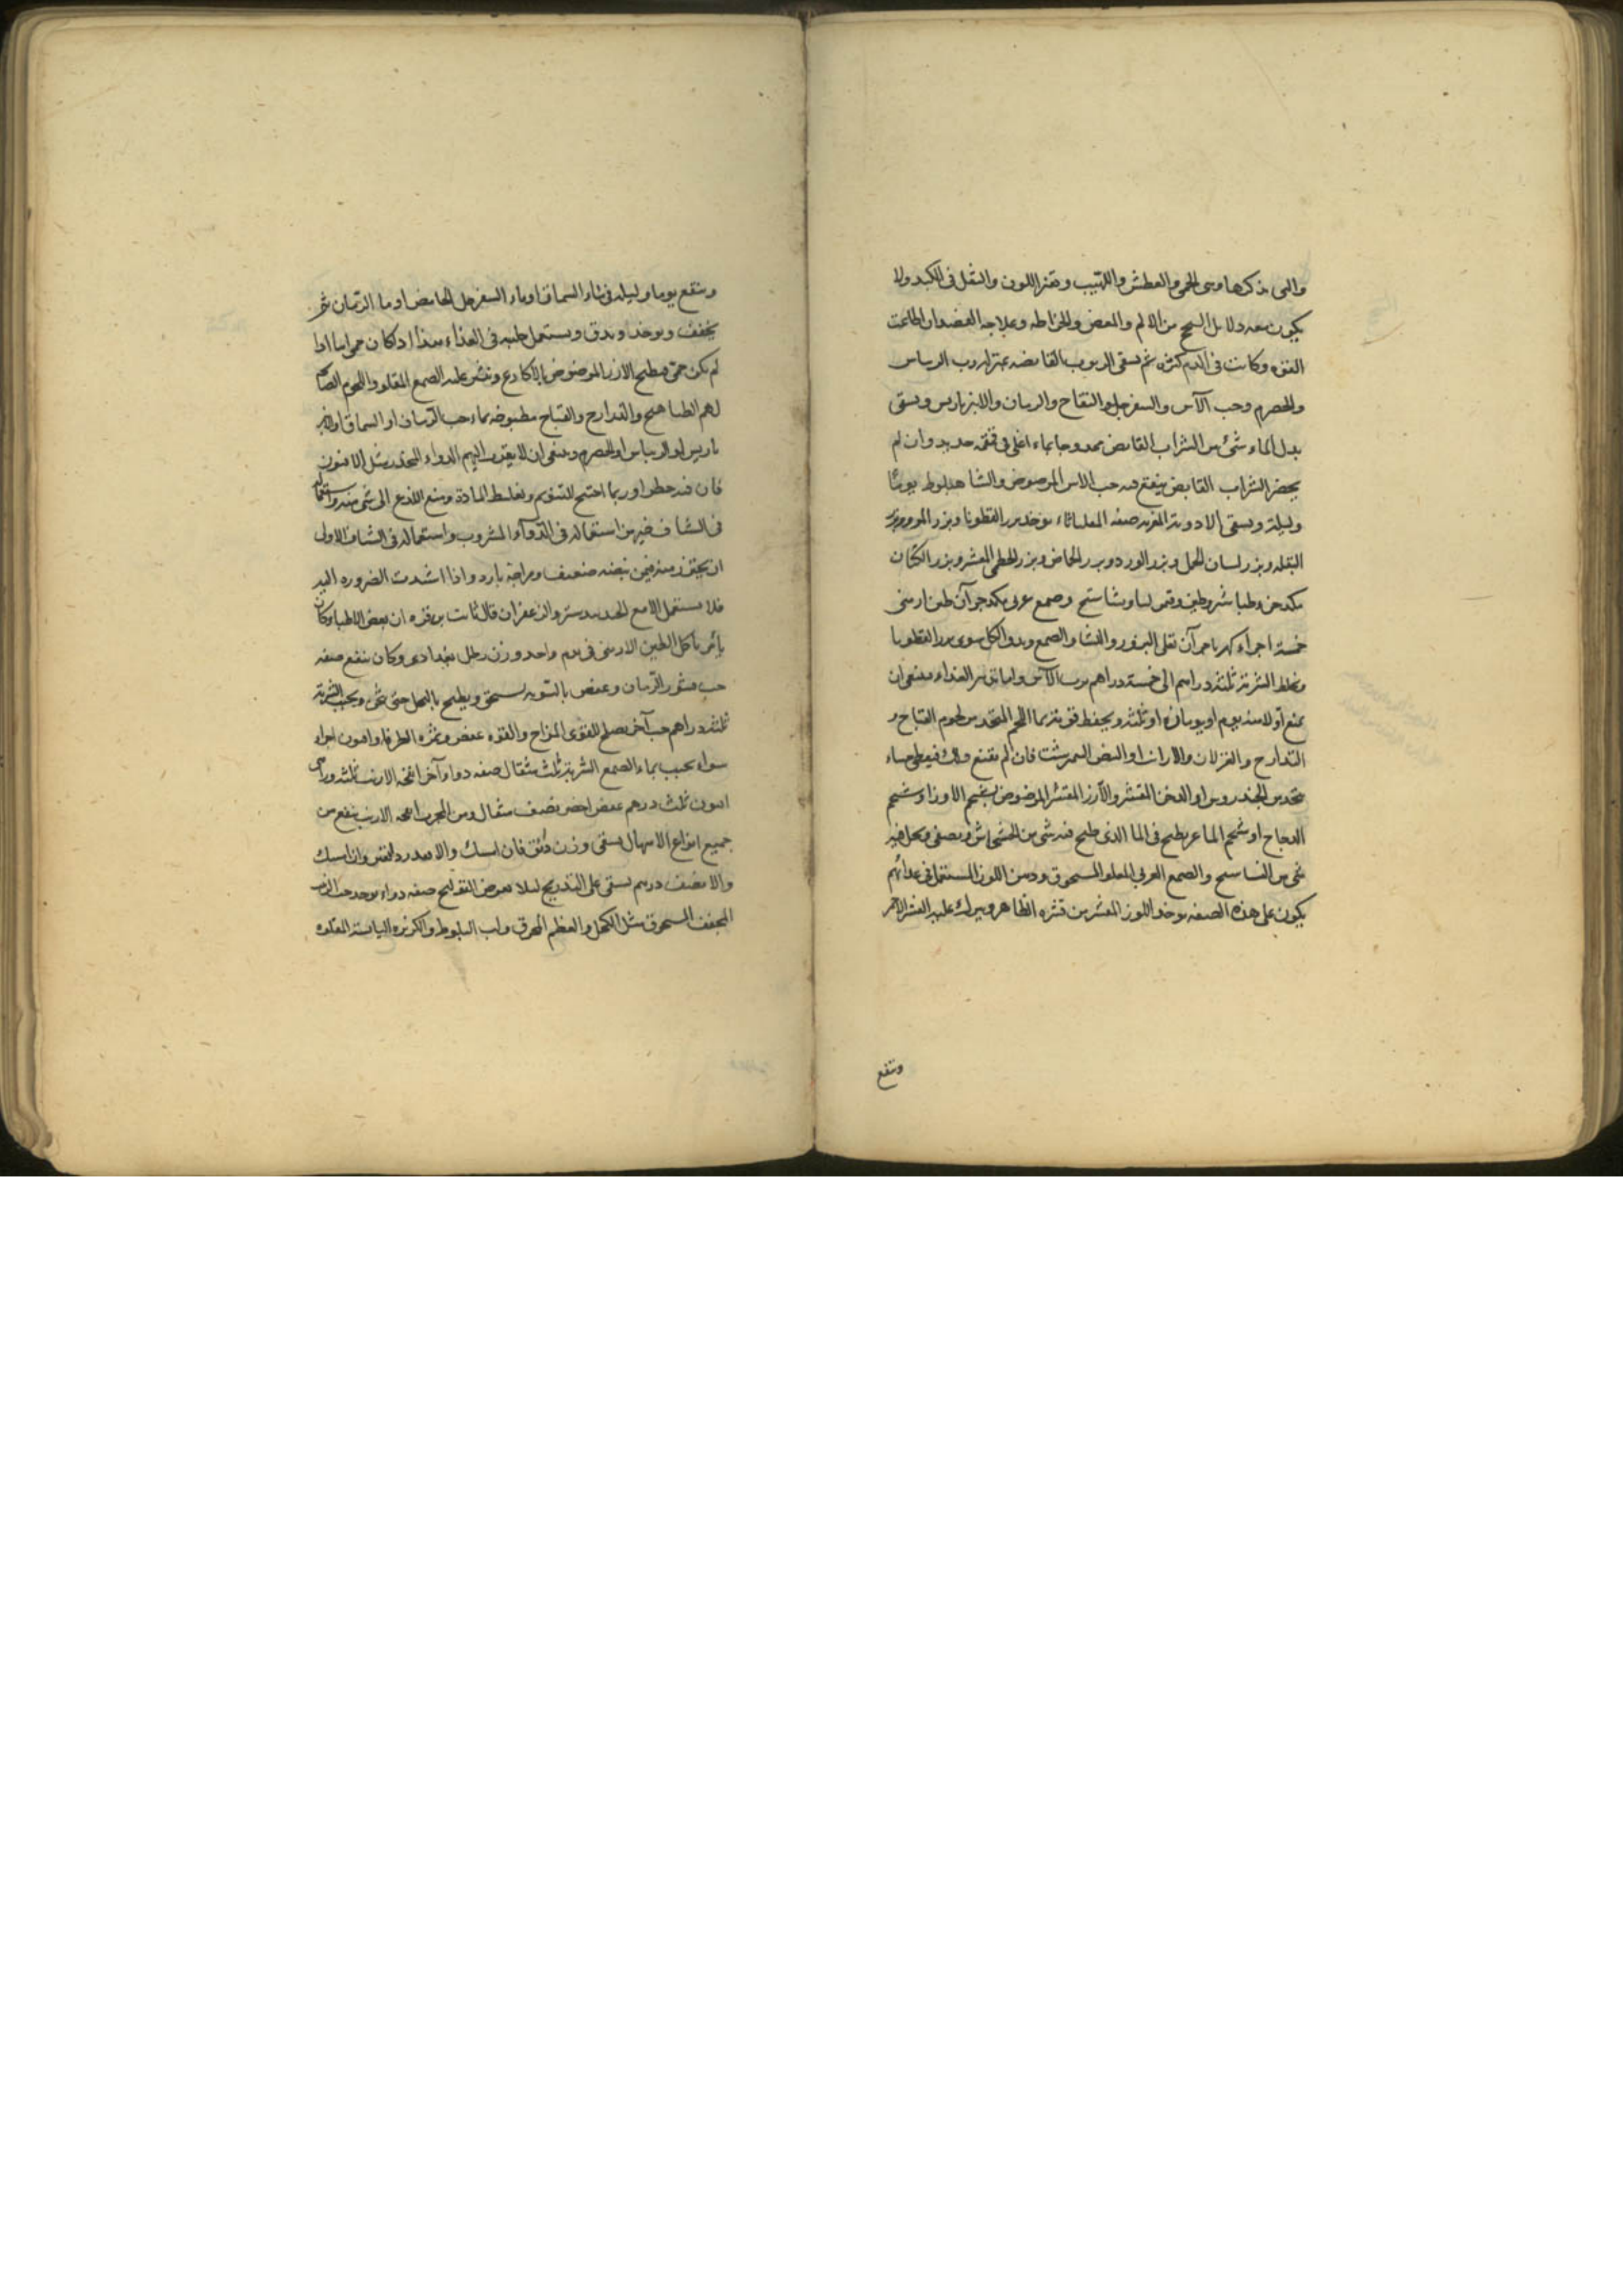 والتى نذكرها وهى الحمى والعطش واللهيب وتغير اللون والثقل فى الكبد ولا
يكون معه دلايل السحج من الالم والمغص والخراطه وعلاجه الفصد ان اطاعت
القوه وكانت فى الدم كثره ثم يسقى الربوب القابضه بمنزله رب الريباس
والحصرم وحب الآس والسفرجل والتفاح والرمان والانبرباريس ويسقى
بدل الماء شئ من الشراب القابض ممزوجا بماء اغلى فى حديد وان لم
يحضر الشراب القابض ينقع فيه حب الاس المرضوض والشاهبلوط يوما
وليلة ويسقى الادوية المغريه صفه المقلياثاء يوخذ بزر القطونا وبزر المرو وبزر
البقله وبزر لسان الحمل وبزر الورد وبزر الحماض وبزر الخطمى المقشر وبزر الكتان
وطباشير وطين ونشاستج وصمغ عربى طين ارمنى
خمسة اجزاء كهربا جزآن تقلى البزور والنشا والصمغ ويدق الكل سوى بزر القطونا
ويخلط الشربة ثلثة دراهم الى خمسة دراهم برب الآس واما تدبير الغذاء فينبغى ان
يمنع اولا منه يوم او يومان او ثلثه ويحفظ قوته بماء اللحم المتخذ من لحوم القباج و
التدارج والغزلان والارانب او البيض النمرشت فان لم يقنع ذلك فيعطى حساء
متخذ من الجندروس او الدخن المقشر والآرز المقشر المرضوض بشحم الاوز او شحم
الدجاج او شحم الماعز يطبخ فى الماء الذى طبخ فيه شئ من الخشخاش ويصفى ويجعل فيه
شئ من النشاستج والصمغ العربى المقلو المسحوق ودهن اللوز المستعمل فى غذائهم
يكون على هذه الصفه يوخذ اللوز المقشر من قشره الظاهر ويترك عليه القشر الاحمر
وينقع
وينقع يوما وليله فى ماء السماق او ماء السفرجل الحامض او ماء الرمان ثم
يجفف ويوخذ ويدق ويستعمل حليبه فى الغذاء هذا اذا كان حمى اما اذا
لم يكن حمى فيطبخ الارز المرضوض بالاكارع وينثر عليه الصمغ المقلو واللحوم
لهم الطياهيج والتدارج والقباج مطبوخه بماء حب الرمان او السماق او الانبر
باريس او الريباس او الحصرم وينبغى ان لا يقدم اليهم الدواء المخدر مثل الافيون
فان فيه خطرا وربما احتيج للتنويم وتغليظ المادة ومنع اللذع الى شئ منه واستعماله
فى الشياف خير من استعماله فى الدوآء المشروب واستعماله فى الشياف الاولى
ان يحترز منه فيمن نبضه ضعيف ومزاجه بارد واذا اشدت الضروره اليه
فلا يستعمل الا مع الجندبيدستر والزعفران قال ثابت بن قره ان بعض الاطبا وكان
يامر باكل الطين الارمنى فى يوم واحد وزن رطل بغدادى وكان ينفع صفه
حب قشور الرمان وعفص بالسويه يسحق ويطبخ بالخل حتى ويحبب الشربة
ثلثه دراهم حب آخر يصلح للقوى المزاج والقوه عفص وثمره الطرفاء وافيون اجزاء
سواء يحبب بماء الصمغ الشربة ثلث مثقال صفه دواء آخر انفحه الارنب ثلثه دراهم
افيون ثلث درهم عفص اخضر نصف مثقال ومن المجرب انفحه الارنب ينفع من
جميع انواع الاسهال يسقى وزن دانق فان امسك والا فقدر دانقين وان امسك
والا نصف درهم يسقى على التدريج ليلا يعرض القولنج صفه دواء يوخذ حب الزبيب
المجفف المسحوق مثل الكحل والعظم المحرق ولب البلوط والكزبره اليابسه المقلوه